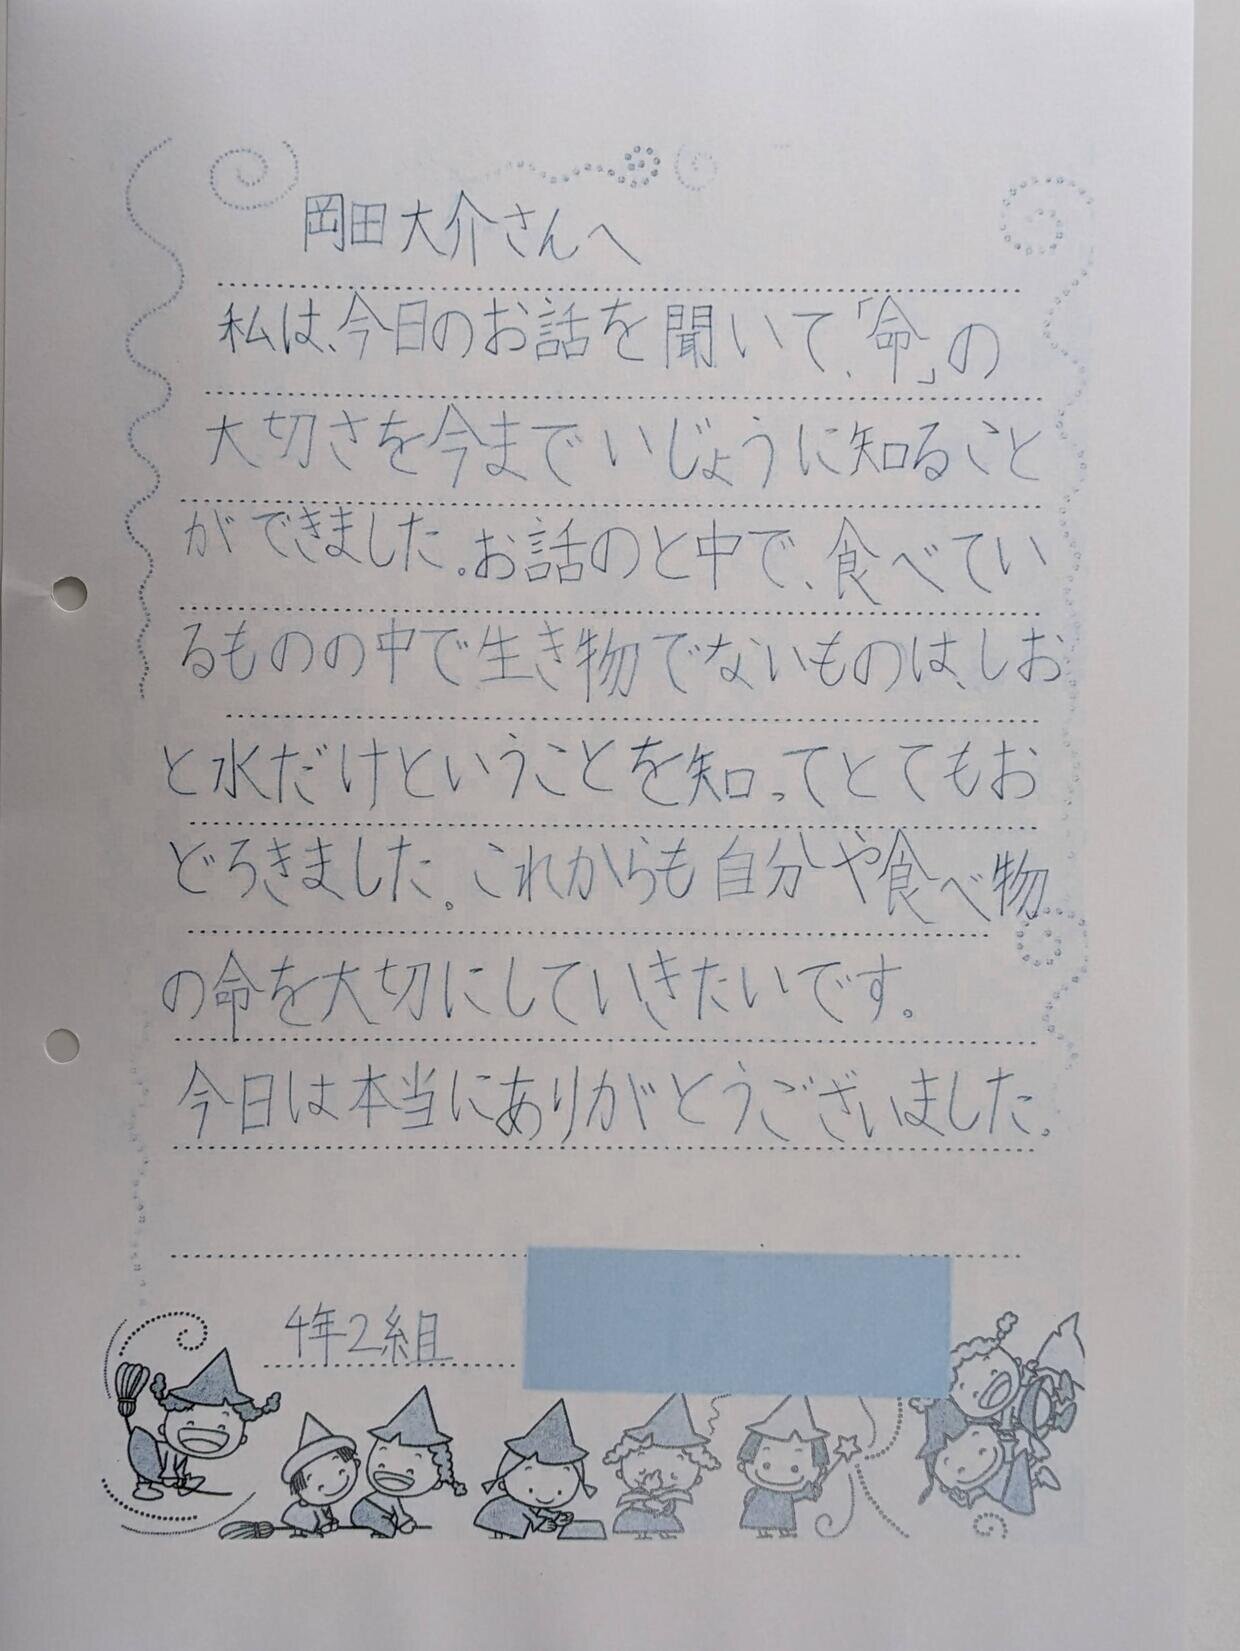 岡田大介さんへ
私は、今日のお話を聞いて、「命」の
大切さを今までいじょうに知ること
ができました。お話のと中で、食べてい
るものの中で生き物でないものは、しお
と水だけということを知ってとてもお
どろきました。これからも自分や食べ物
の命を大切にしていきたいです。
今日は本当にありがとうございました。
4年2組